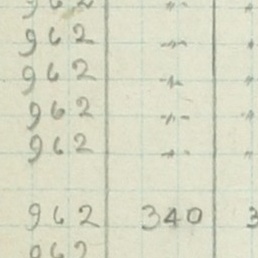 962 -"-
962 -"-
962 -"-
962 -"-
962 -"-
962 340
962